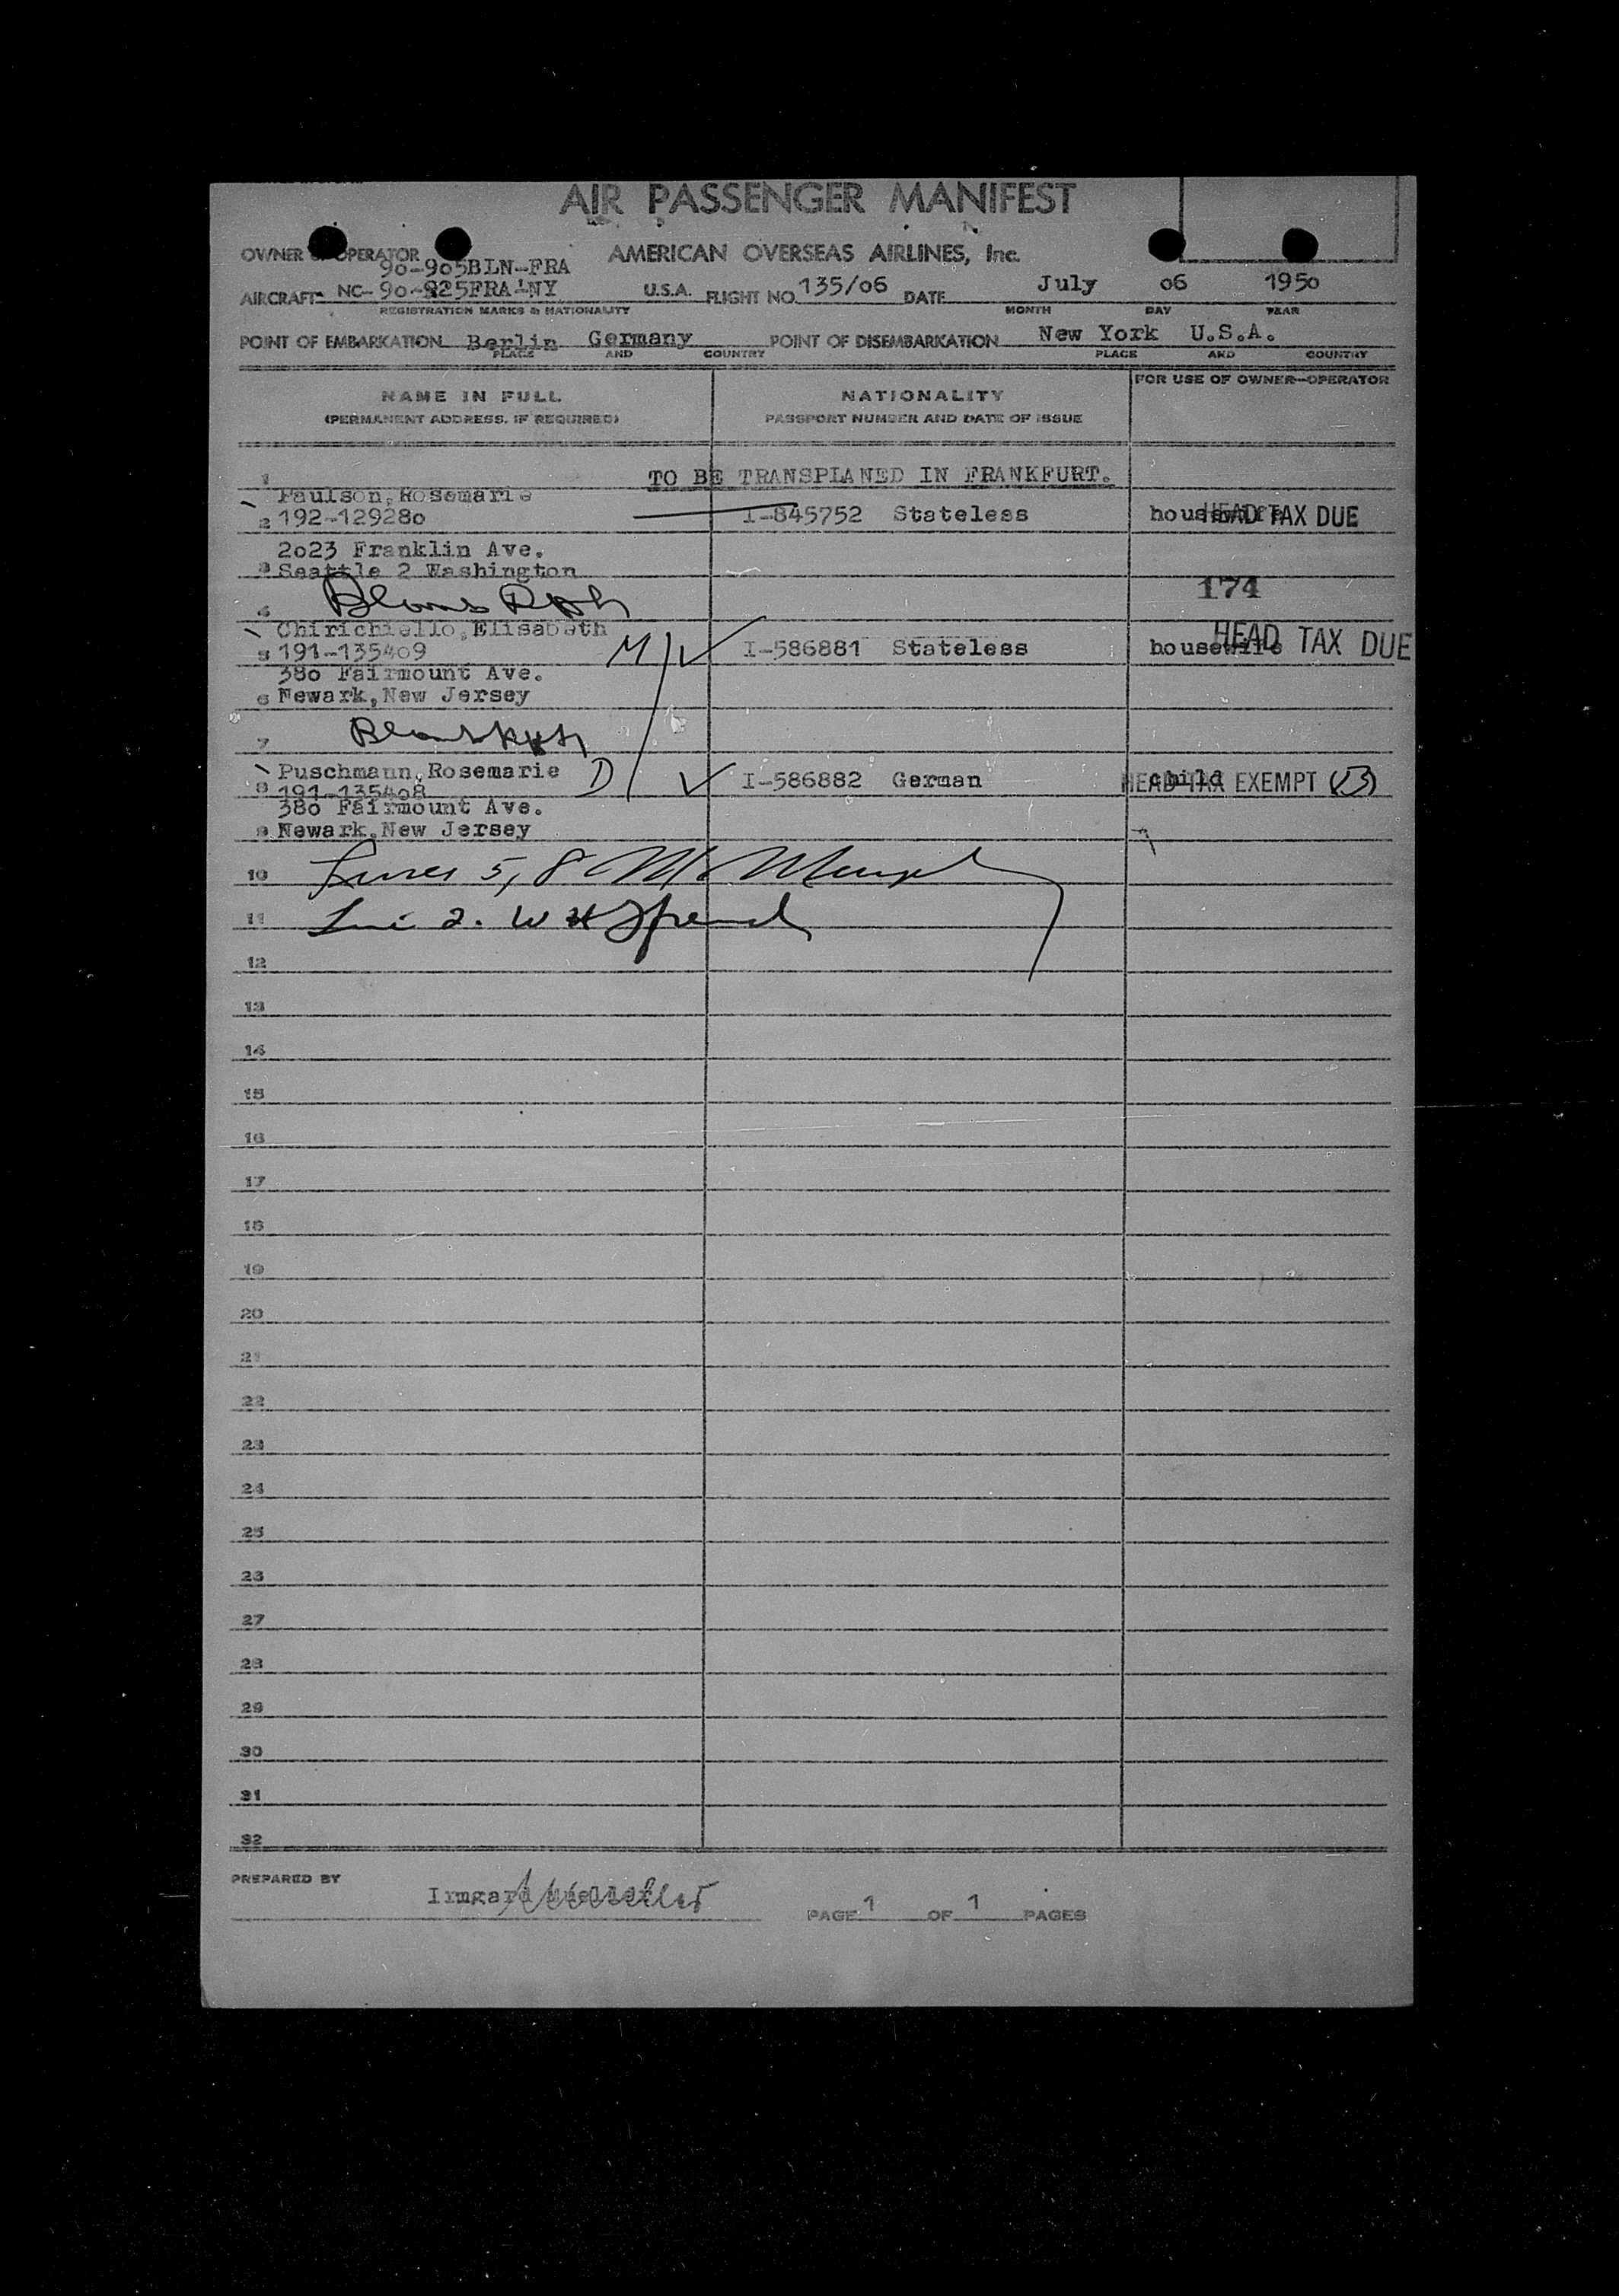 AIR PASSENGER MANIFEST
OWNER OPERATOR AMERICAN OVERSEAS AIRLINES, Inc.
90-905BLN-FRA
AIRCRAFT NC-90-925FRA-NY U.S.A. FLIGHT NO. 135/06 DATE July 06 1950
REGISTRATION MARKS & NATIONALITY MONTH DAY YEAR
POINT OF EMBARKATION Berlin Germany POINT OF DISEMBARKATION New York U.S.A.
PLACE AND COUNTRY PLACE AND COUNTRY
NAME IN FULL NATIONALITY FOR USE OF OWNER-OPERATOR
(PERMANENT ADDRESS, IF REQUIRED) PASSPORT NUMBER AND DATE OF ISSUE
1 TO BE TRANSPLANED IN FRANKFURT.
Paulson, Rosemarie
2 192-129280 I-845752 Stateless housewife HEAD TAX DUE
2023 Franklin Ave.
3 Seattle 2 Washington
174
4
Chirichiello, Elisabeth
5 191-135409 M ✓ I-586881 Stateless housewife HEAD TAX DUE
380 Fairmount Ave.
6 Newark, New Jersey
7
Puschmann, Rosemarie D ✓ I-586882 German child HEAD TAX EXEMPT
8 191-135408
380 Fairmount Ave.
9 Newark, New Jersey
10 5, 8
11 2. W H
12
13
14
15
16
17
18
19
20
21
22
23
24
25
26
27
28
29
30
31
32
PREPARED BY
Irmgard
PAGE 1 OF 1 PAGES